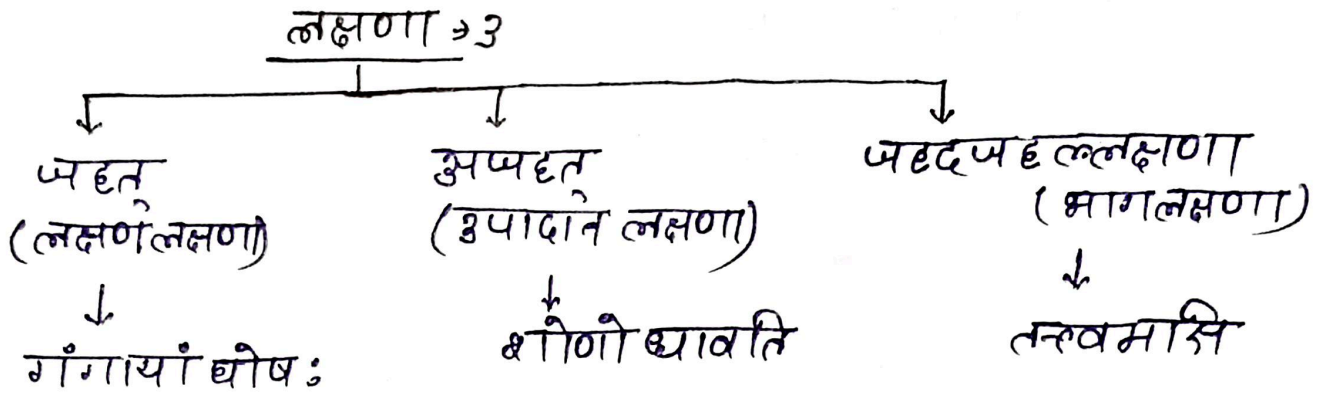 लक्षणा → 3
जहत्
(लक्षणलक्षणा)
गंगायां घोषः
अजहत्
(उपादान लक्षणा)
शोणो धावति
जहदजहल्लक्षणा
(भागलक्षणा)
तत्त्वमसि